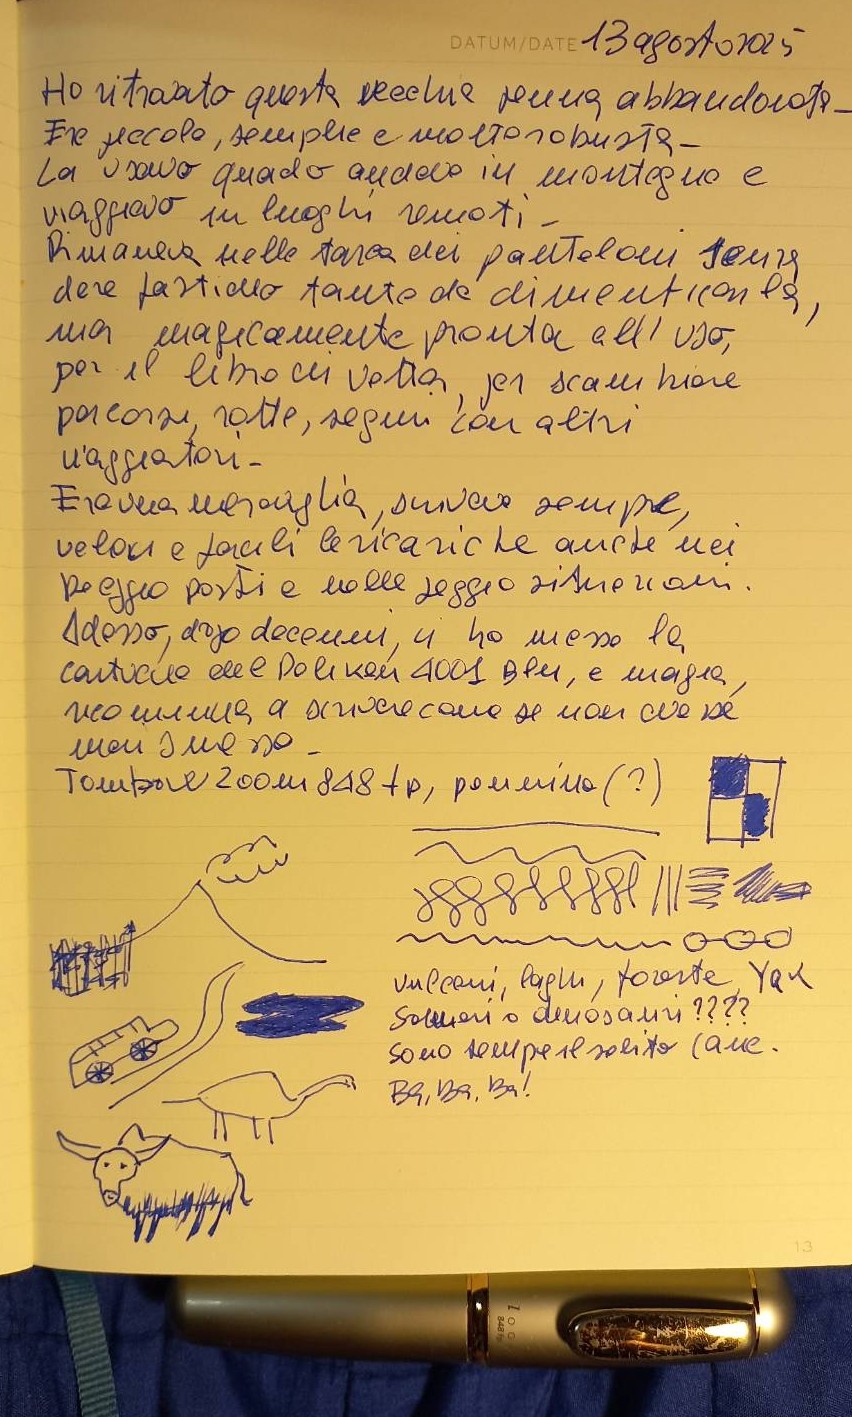 DATUM/DATE 13 agosto 2025
Ho ritrovato questa vecchia penna abbandonata_
Era piccola, semplice e molto robusta_
La usavo quado andavo in montagna e
viaggiavo in luoghi remoti_
Rimaneva nella tasca dei pantaloni senza
dare fastidio tanto da dimenticarla,
ma magicamente pronta all'uso,
per il libro di vetta, per scambiare
percorsi, rotte, segni con altri
viaggiatori_
Era una meraviglia, scriveva sempre,
veloci e facili le ricariche anche nei
peggio posti e nelle peggio situazioni.
Adesso, dopo decenni, ci ho messo la
cartuccia del Pelikan 4001 Blu, e magia,
ricomincia a scrivere come se non avesse
mai smesso_
Tombow Zoom 848 fp, pennino (?)
vulcani, laghi, foreste, Yak
Somari o dinosauri????
Sono sempre il solito cane.
Ba, Ba, Ba!
13
ZOOM
848 fp